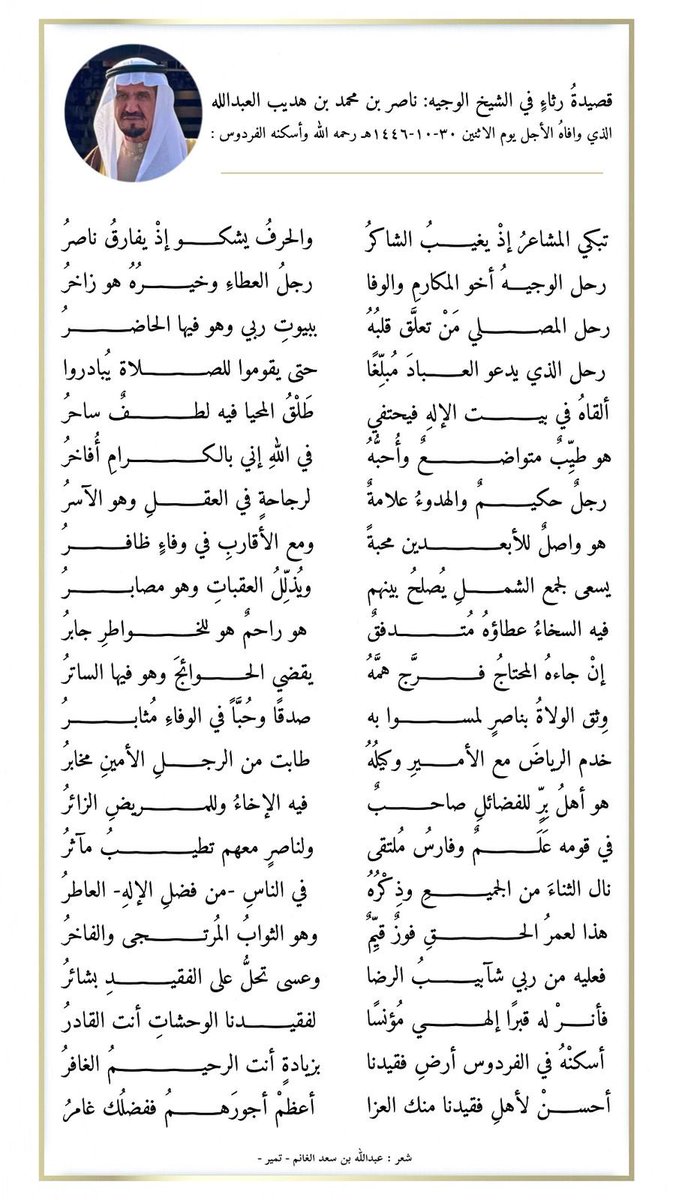 قصيدةُ رثاءٍ في الشيخ الوجيه: ناصر بن محمد بن هديب العبدالله
الذي وافاهُ الأجل يوم الاثنين ٣٠-١٠-١٤٤٦هـ رحمه الله وأسكنه الفردوس :
تبكي المشاعرُ إذْ يغيبُ الشاكرُ والحرفُ يشكو إذْ يفارقُ ناصرُ
رحل الوجيهُ أخو المكارمِ والوفا رجلُ العطاءِ وخيرُهُ هو زاخرُ
رحل المصلي مَنْ تعلَّق قلبُهُ ببيوتِ ربي وهو فيها الحاضرُ
رحل الذي يدعو العبادَ مُبلِّغًا حتى يقوموا للصلاة يُبادروا
ألقاهُ في بيت الإلهِ فيحتفي طَلْقُ المحيا فيه لطفٌ ساحرُ
هو طيِّبٌ متواضعٌ وأُحبهُّ في اللهِ إني بالكرامِ أُفاخرُ
رجلٌ حكيمٌ والهدوءُ علامةٌ لرجاحةٍ في العقلِ وهو الآسرُ
هو واصلٌ للأبعدين محبةً ومع الأقاربِ في وفاءٍ ظافرُ
يسعى لجمع الشملِ يُصلحُ بينهم ويُذلِّلُ العقباتِ وهو مصابرُ
فيه السخاءُ عطاؤهُ مُتدفقٌ هو راحمٌ هو للخواطرِ جابرُ
إنْ جاءهُ المحتاجُ فرَّج همَّهُ يقضي الحوائجَ وهو فيها الساترُ
وِثق الولاةُ بناصرٍ لمسوا به صدقًا وحُبًّا في الوفاءِ مُثابرُ
خدم الرياضَ مع الأميرِ وكيلُهُ طابت من الرجلِ الأمينِ مخابرُ
هو أهلُ برٍّ للفضائلِ صاحبٌ فيه الإخاءُ وللمريضِ الزائرُ
في قومه عَلَمٌ وفارسُ مُلتقى ولناصرٍ معهم تطيبُ مآثرُ
نال الثناءَ من الجميعِ وذِكْرُهُ في الناسِ -من فضلِ الإلهِ- العاطرُ
هذا لعمرُ الحقِ فوزٌ قيِّمٌ وهو الثوابُ المُرتجى والفاخرُ
فعليه من ربي شآبيبُ الرضا وعسى تحلُّ على الفقيدِ بشائرُ
فأنرْ له قبرًا إلهي مُؤنسًا لفقيدنا الوحشاتِ أنت القادرُ
أسكنْهُ في الفردوس أرضِ فقيدنا بزيادةٍ أنت الرحيمُ الغافرُ
أحسنْ لأهلِ فقيدنا منك العزا أعظمْ أجورَهمُ ففضلُك غامرُ
شعر : عبدالله بن سعد الغانم - تمير -